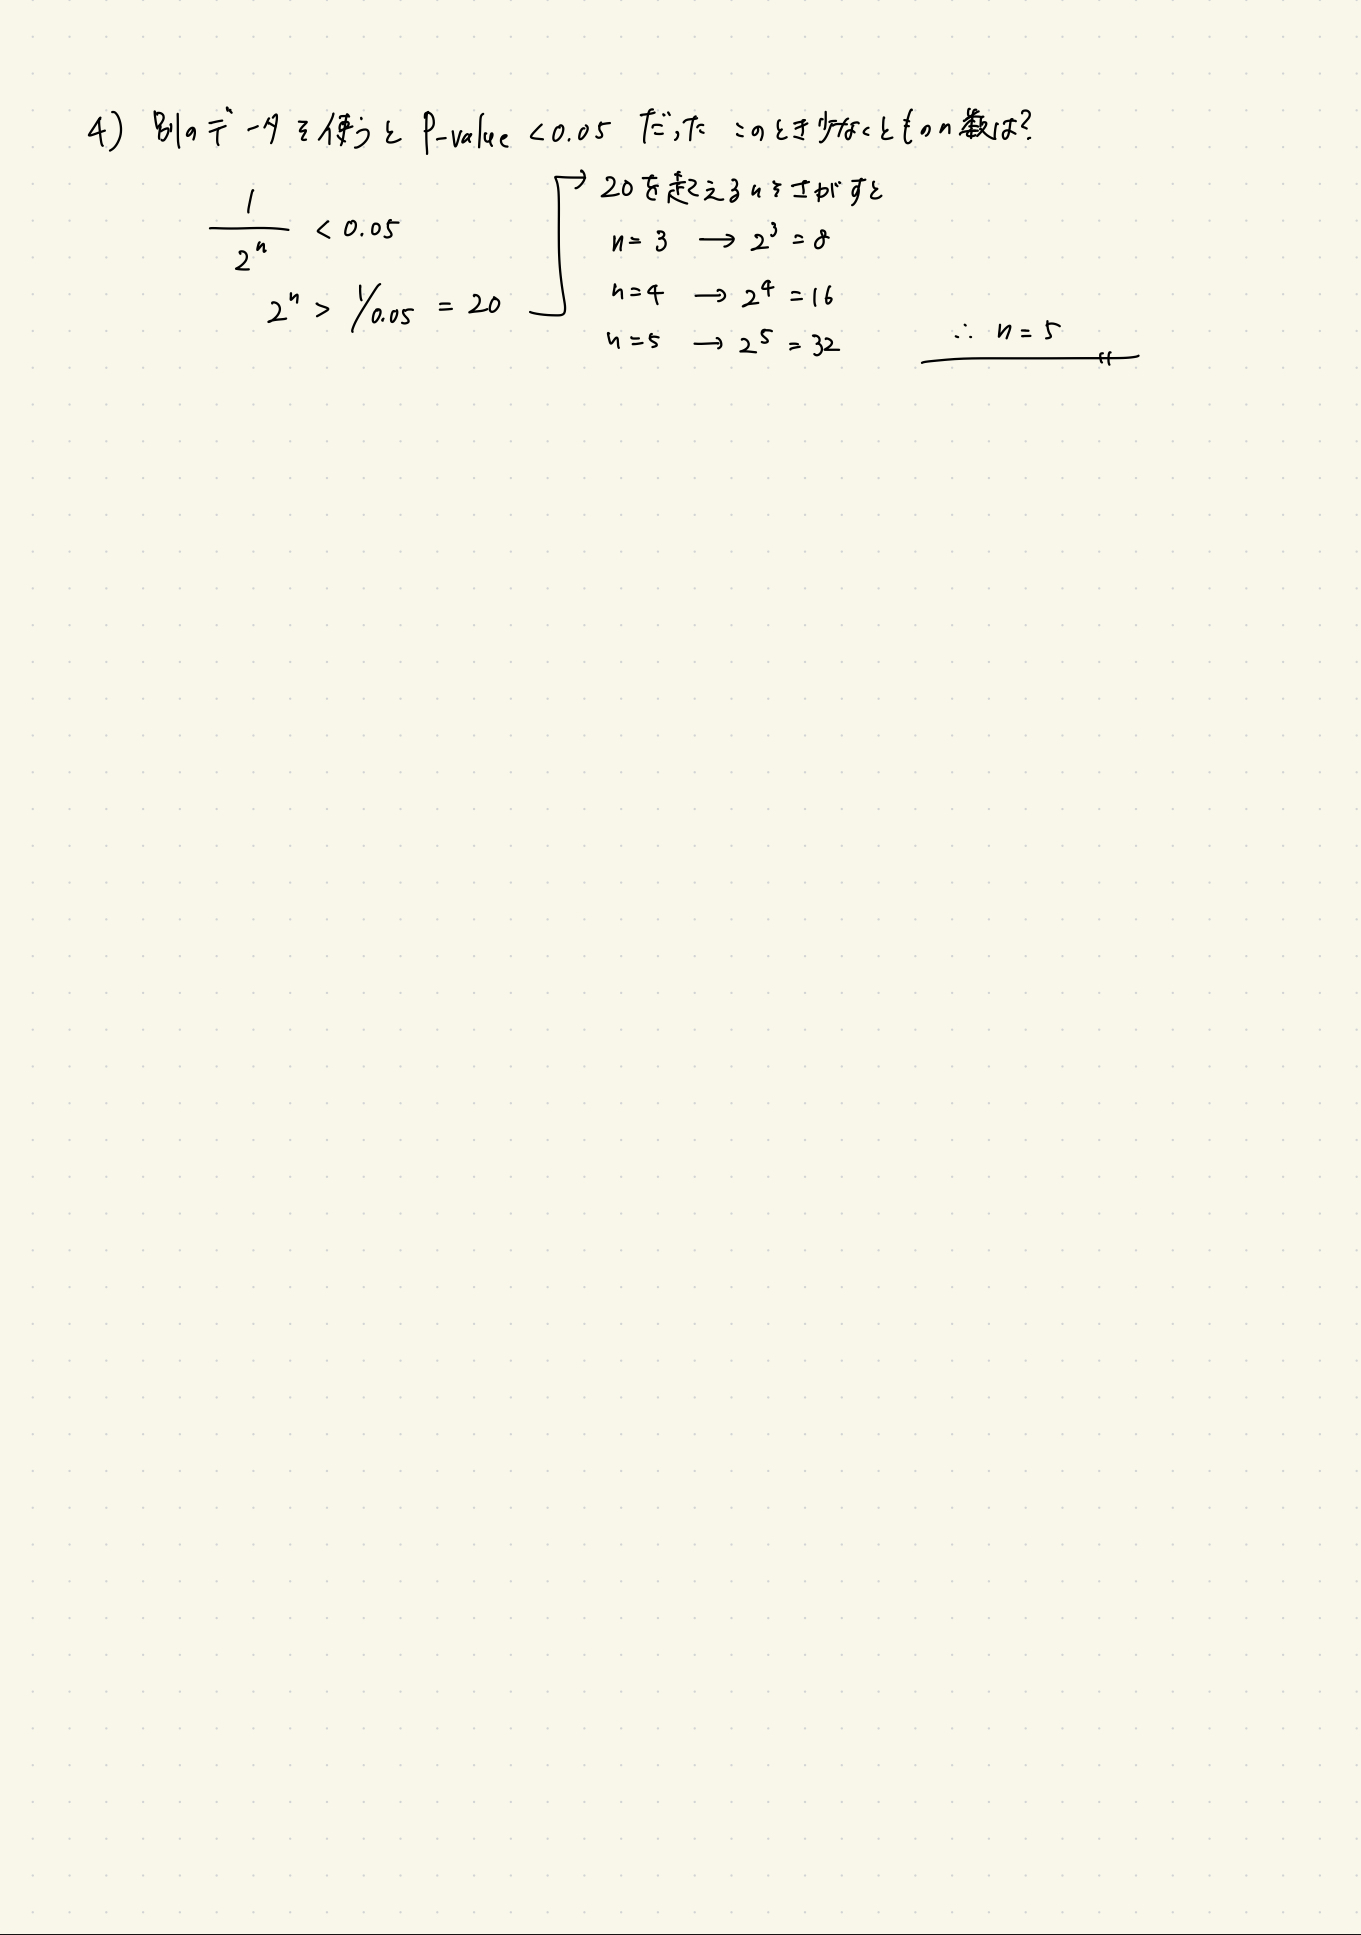 4) 別のデータを使うと P-value < 0.05 だった このとき少なくとものn数は?
1/2^n < 0.05
2^n > 1/0.05 = 20
20を超えるnをさがすと
n = 3 → 2^3 = 8
n = 4 → 2^4 = 16
n = 5 → 2^5 = 32
∴ n = 5